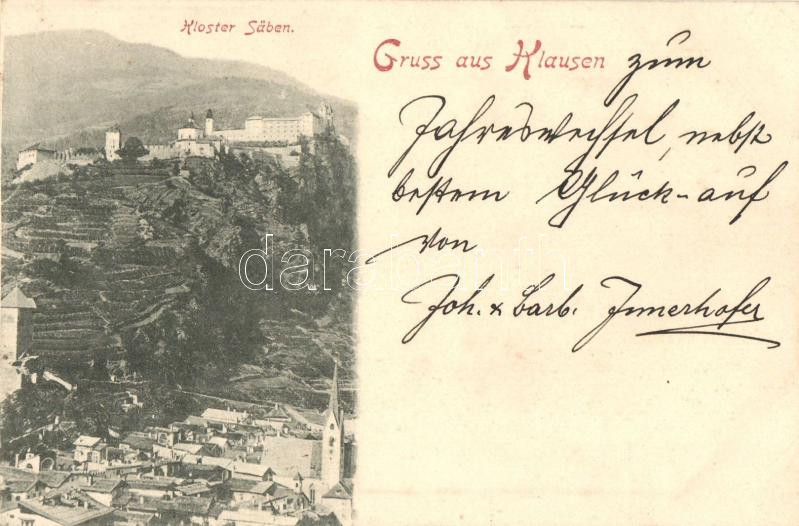 Kloster Säben.
Gruss aus Klausen zum
Jahreswechsel, nebst
bestem Glück-auf
von
Joh. & Barb. Innerhofer
darabanth.com